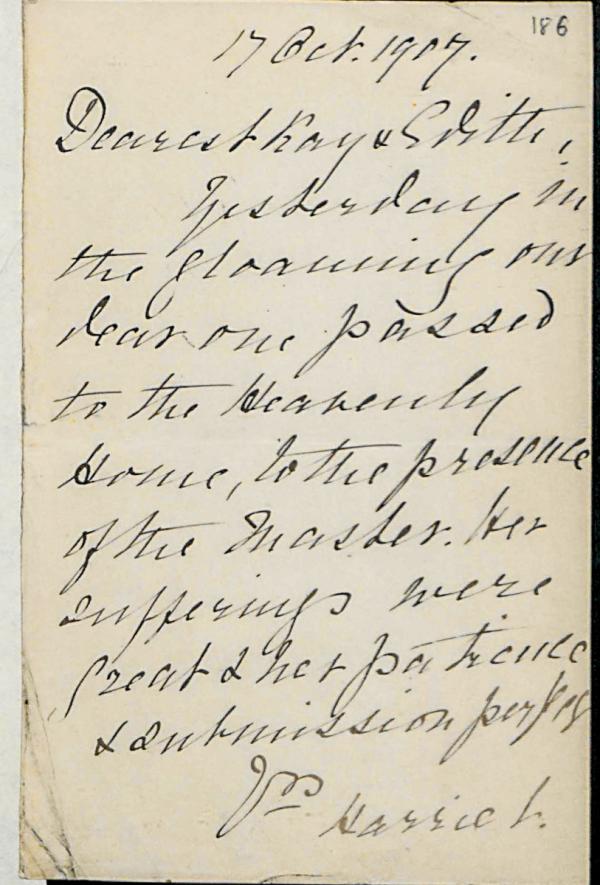 186
17 Oct. 1907.
Dearest Kay & Edith,
Yesterday in
the gloaming our
dear one passed
to the Heavenly
Home, to the presence
of the Master. Her
sufferings were
great & her patience
& submission perfect
Yrs
Harriet.